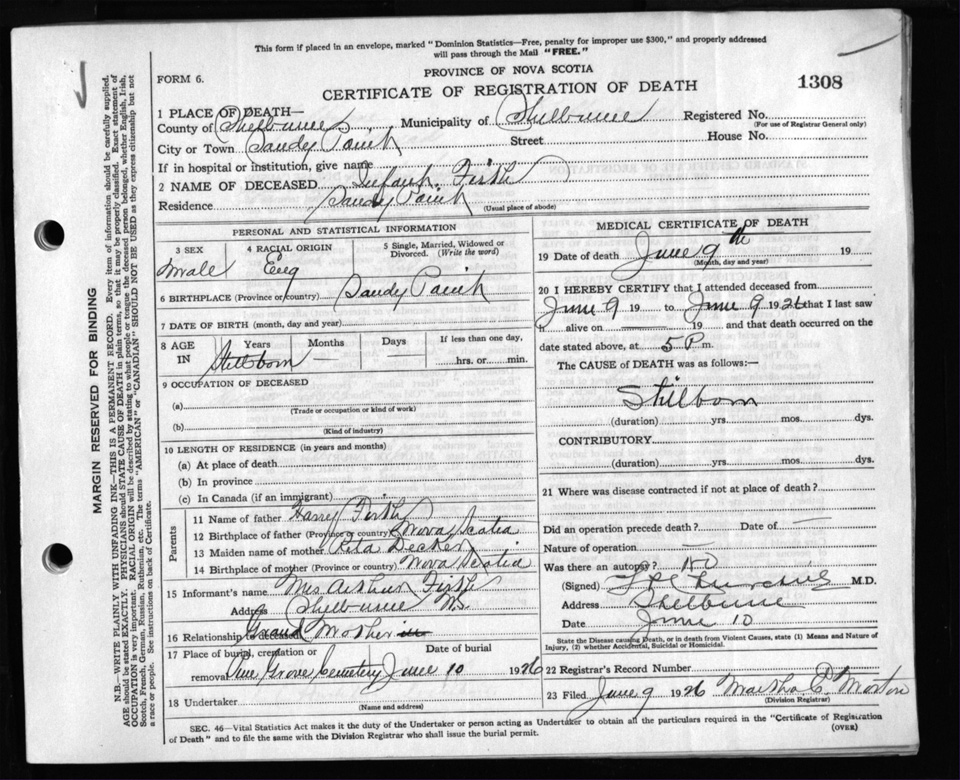 This form if placed in an envelope, marked "Dominion Statistics—Free, penalty for improper use $300," and properly addressed
will pass through the Mail "FREE."
FORM 6.
PROVINCE OF NOVA SCOTIA
CERTIFICATE OF REGISTRATION OF DEATH
1308
1 PLACE OF DEATH—
County of Shelburne Municipality of Shelburne Registered No.
(For use of Registrar General only)
City or Town Sandy Point Street House No.
If in hospital or institution, give name
2 NAME OF DECEASED Infant. Firth
Residence Sandy Point
(Usual place of abode)
PERSONAL AND STATISTICAL INFORMATION
3 SEX 4 RACIAL ORIGIN 5 Single, Married, Widowed or
Divorced. (Write the word)
Male Eng
6 BIRTHPLACE (Province or country) Sandy Point
7 DATE OF BIRTH (month, day and year)
8 AGE IN Years Months Days If less than one day,
Stillborn hrs. or min.
9 OCCUPATION OF DECEASED
(a)
(Trade or occupation or kind of work)
(b)
(Kind of industry)
10 LENGTH OF RESIDENCE (in years and months)
(a) At place of death
(b) In province
(c) In Canada (if an immigrant)
Parents
11 Name of father Harry Firth
12 Birthplace of father (Province or country) Nova Scotia
13 Maiden name of mother Rita Decker
14 Birthplace of mother (Province or country) Nova Scotia
15 Informant's name Mrs Arthur Firth
Address Shelburne N.S.
16 Relationship to deceased Grand Mother
17 Place of burial, cremation or removal Date of burial
Pine Grove Cemetery June 10 1926
18 Undertaker
(Name and address)
MEDICAL CERTIFICATE OF DEATH
19 Date of death June 9th 19
(Month, day and year)
20 I HEREBY CERTIFY that I attended deceased from
June 9 19 to June 9 1926 that I last saw
h alive on — 19 and that death occurred on the
date stated above, at 5 P m.
The CAUSE OF DEATH was as follows:—
Stillborn
(duration) yrs. mos. dys.
CONTRIBUTORY
(duration) yrs. mos. dys.
21 Where was disease contracted if not at place of death?
Did an operation precede death? Date of —
Nature of operation —
Was there an autopsy? No
(Signed) M.D.
Address Shelburne
Date June 10
State the Disease causing Death, or in death from Violent Causes, state (1) Means and Nature of
Injury, (2) whether Accidental, Suicidal or Homicidal.
22 Registrar's Record Number
23 Filed June 9 1926 Martha C. Morton
(Division Registrar)
SEC. 46—Vital Statistics Act makes it the duty of the Undertaker or person acting as Undertaker to obtain all the particulars required in the "Certificate of Registration
of Death" and to file the same with the Division Registrar who shall issue the burial permit.
(OVER)
MARGIN RESERVED FOR BINDING
N.B.—WRITE PLAINLY WITH UNFADING INK—THIS IS A PERMANENT RECORD. Every item of information should be carefully supplied.
AGE should be stated EXACTLY. PHYSICIANS should STATE CAUSE OF DEATH in plain terms, so that it may be properly classified. Exact statement of
OCCUPATION is very important. RACIAL ORIGIN will be described by stating to what people or tongue the deceased person belonged, whether English, Irish,
Scotch, French, German, Russian, Ruthenian, etc. The terms "AMERICAN" or "CANADIAN" SHOULD NOT BE USED as they express citizenship but not
a race or people. See instructions on back of Certificate.